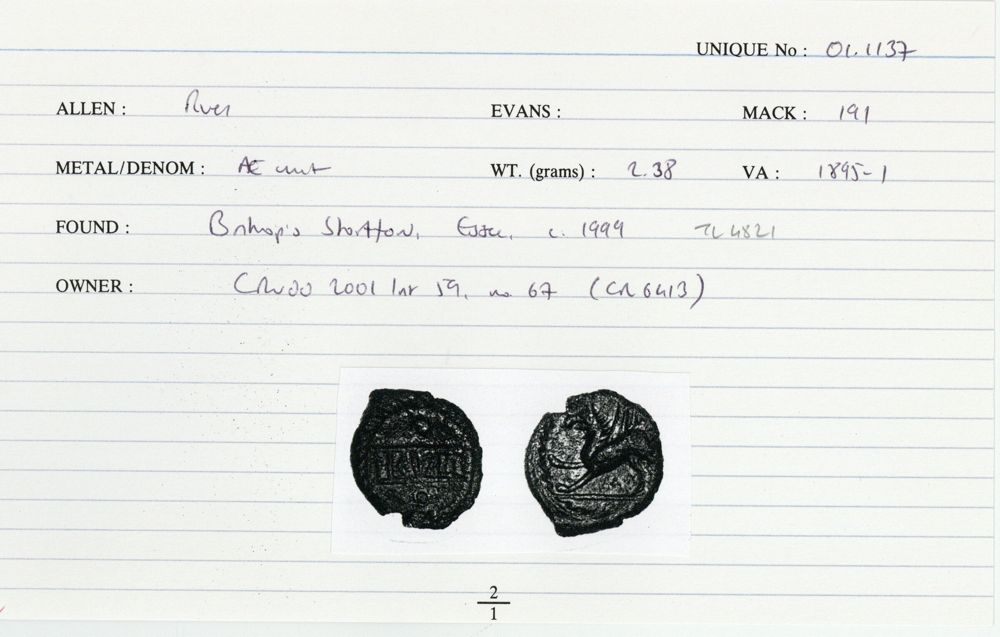 UNIQUE No : 01.1137
ALLEN : River EVANS : MACK : 191
METAL/DENOM : Æ unit WT. (grams) : 2.38 VA : 1895-1
FOUND : Bishop's Stortford, Essex, c. 1999 TL 4821
OWNER : 2001 59, no 67 (CR 6413)
2
1